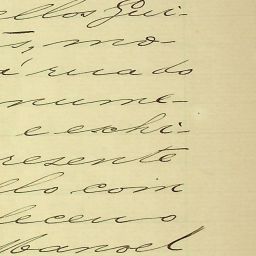 ellos Gui-
s, mo-
á rua do
nume-
e eschi-
resente
llo com
leceno
Manoel